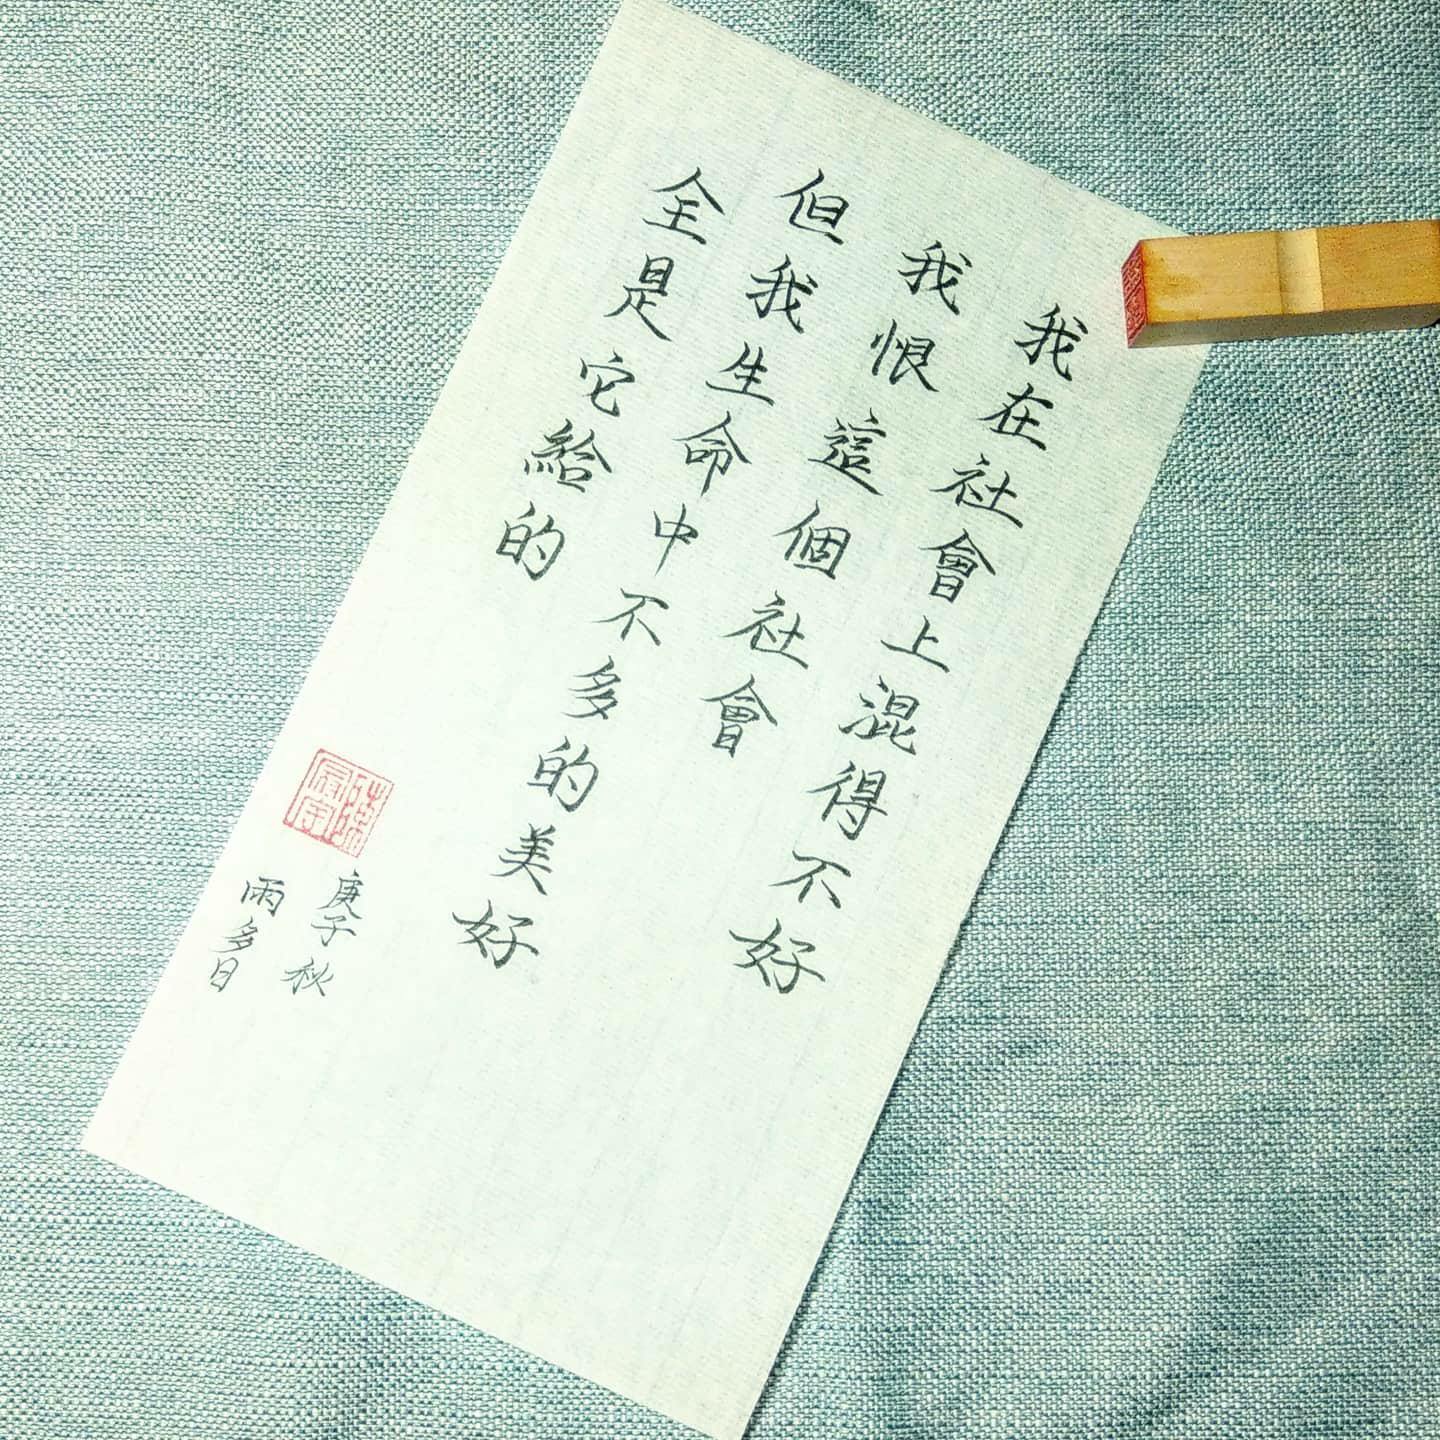 我在社會上混得不好
我恨這個社會
但我生命中不多的美好
全是它給的
庚子秋
雨多日